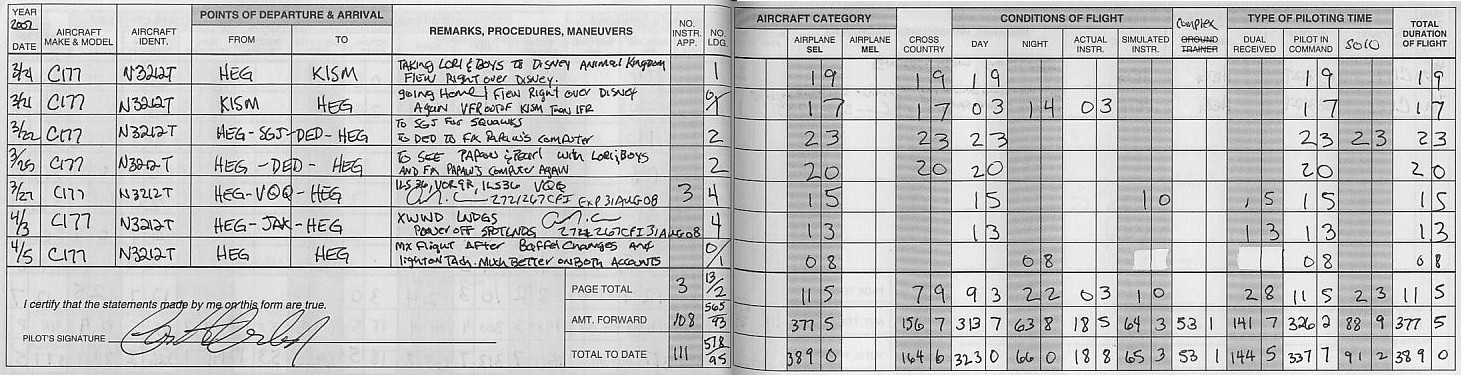 YEAR 2007 DATE AIRCRAFT MAKE & MODEL AIRCRAFT IDENT. POINTS OF DEPARTURE & ARRIVAL FROM TO REMARKS, PROCEDURES, MANEUVERS NO. INSTR. APP. NO. LDG. AIRCRAFT CATEGORY AIRPLANE SEL AIRPLANE MEL CROSS COUNTRY CONDITIONS OF FLIGHT DAY NIGHT ACTUAL INSTR. SIMULATED INSTR. Complex GROUND TRAINER TYPE OF PILOTING TIME DUAL RECEIVED PILOT IN COMMAND SOLO TOTAL DURATION OF FLIGHT
3/21 C177 N3212T HEG KISM TAKING LORI & BOYS TO DISNEY ANIMAL KINGDOM 1 1 9 1 9 1 9 1 9 1 9
FLEW RIGHT OVER DISNEY.
3/21 C177 N3212T KISM HEG GOING HOME! FLEW RIGHT OVER DISNEY 0/1 1 7 1 7 0 3 1 4 0 3 1 7 1 7
AGAIN VFR OUT OF KISM THEN IFR
3/22 C177 N3212T HEG-SGJ-DED-HEG TO SGJ FOR SQUAWKS 2 2 3 2 3 2 3 2 3 2 3 2 3
TO DED TO FIX PAPAW'S COMPUTER
3/25 C177 N3212T HEG - DED - HEG TO SEE PAPAW & PEARL WITH LORI, BOYS 2 2 0 2 0 2 0 2 0 2 0
AND FIX PAPAW'S COMPUTER AGAIN
3/27 C177 N3212T HEG-VQQ-HEG ILS 36, VOR 9R, ILS36 VQQ 3 4 1 5 1 5 1 0 1 5 1 5 1 5
2721267CFI EXP 31AUG08
4/3 C177 N3212T HEG-JAX-HEG XWWD LNDGS 4 1 3 1 3 1 3 1 3 1 3
POWER OFF SPOT LNDS 2721267CFI 31AUG08
4/5 C177 N3212T HEG HEG MX FLIGHT AFTER BAFFEL CHANGES AND 0/1 0 8 0 8 0 8 0 8
LIGHT ON TACH. MUCH BETTER ON BOTH ACCOUNTS
PAGE TOTAL 3 13/2 11 5 7 9 9 3 2 2 0 3 1 0 2 8 11 5 2 3 11 5
I certify that the statements made by me on this form are true.
AMT. FORWARD 108 565/93 377 5 156 7 313 7 63 8 18 5 64 3 53 1 141 7 326 2 88 9 377 5
PILOT'S SIGNATURE
TOTAL TO DATE 111 578/95 389 0 164 6 323 0 66 0 18 8 65 3 53 1 144 5 337 7 91 2 389 0